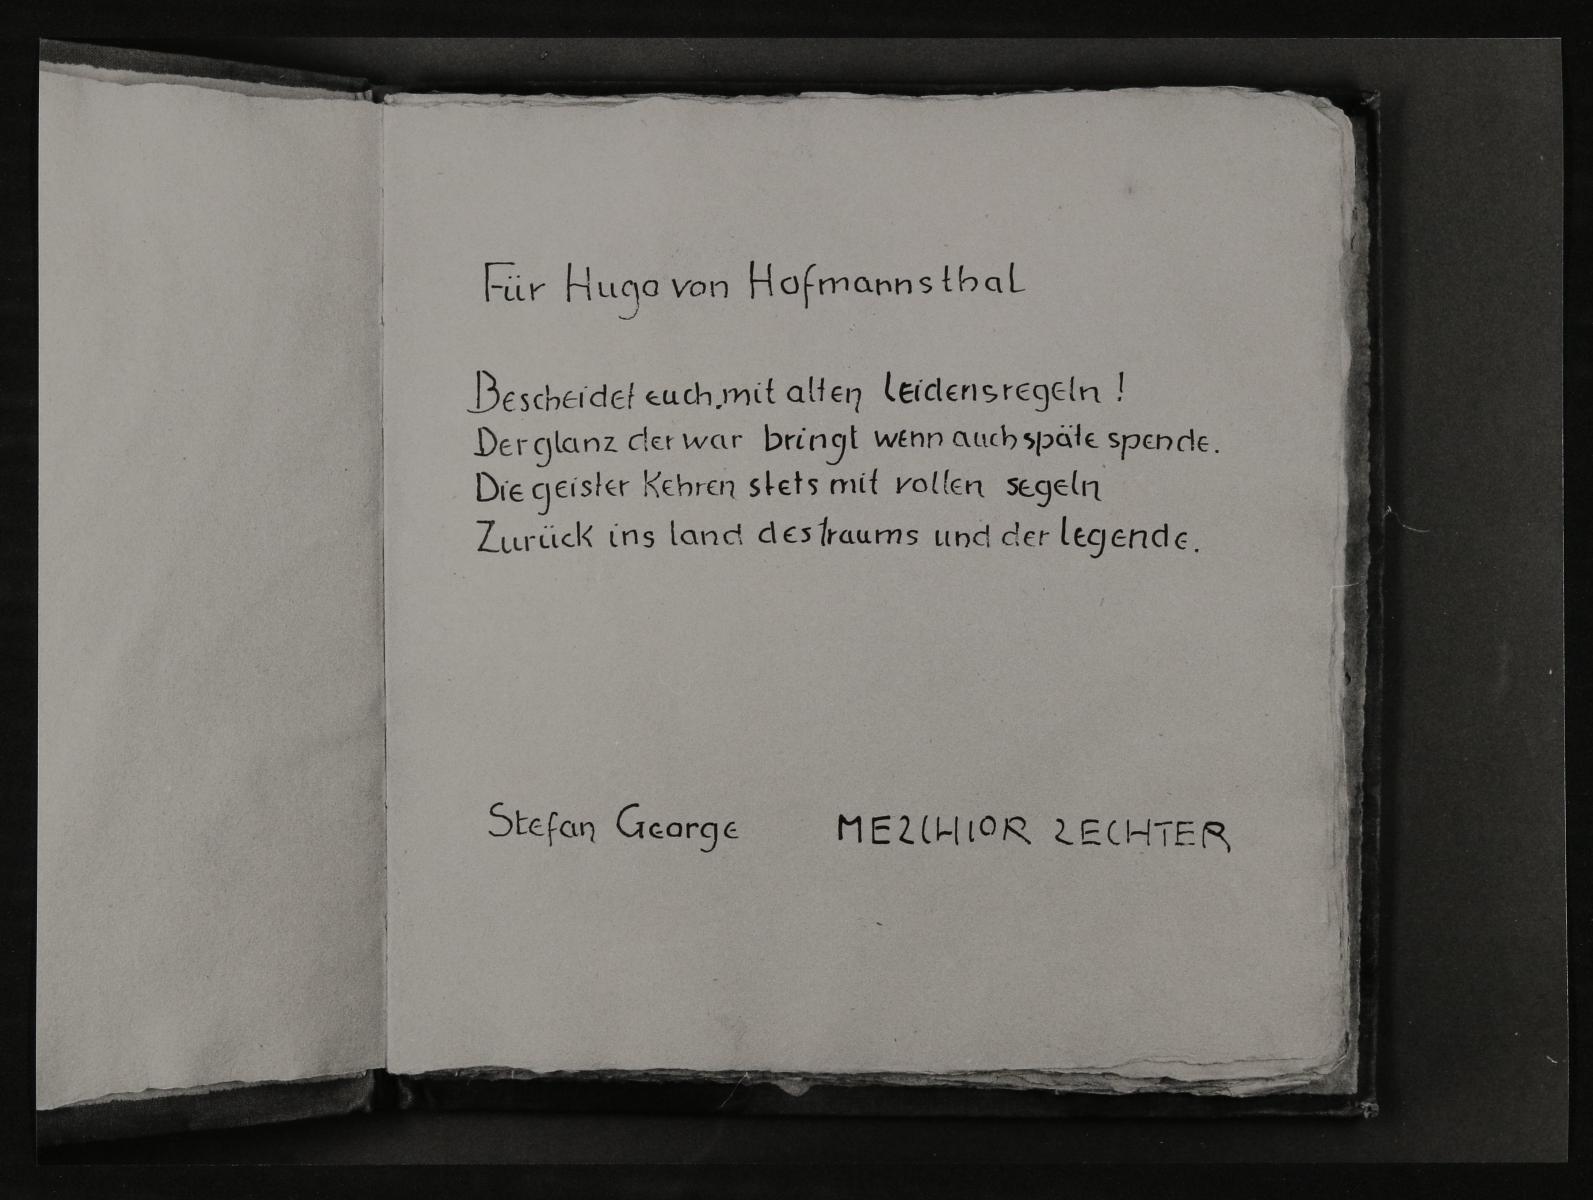 Für Hugo von Hofmannsthal
Bescheidet euch mit alten leidensregeln!
Der glanz der war bringt wenn auch späte spende.
Die geister kehren stets mit vollen segeln
Zurück ins land des traums und der legende.
Stefan George MELCHIOR LECHTER